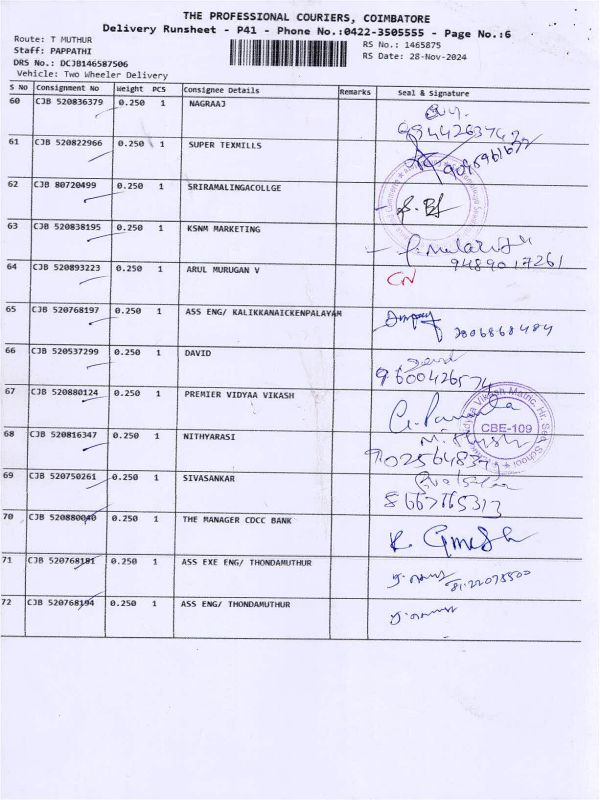 THE PROFESSIONAL COURIERS, COIMBATORE
Delivery Runsheet - P41 - Phone No.:0422-3505555 - Page No.:6
Route: T MUTHUR
RS No.: 1465875
Staff: PAPPATHI
RS Date: 28-Nov-2024
DRS No.: DCJB146587506
Vehicle: Two Wheeler Delivery
S No Consignment No Weight PCS Consignee Details Remarks Seal & Signature
60 CJB 520836379 0.250 1 NAGRAAJ
61 CJB 520822966 0.250 1 SUPER TEXMILLS
62 CJB 80720499 0.250 1 SRIRAMALINGACOLLGE
63 CJB 520838195 0.250 1 KSNM MARKETING
9489017261
64 CJB 520893223 0.250 1 ARUL MURUGAN V
65 CJB 520768197 0.250 1 ASS ENG/ KALIKKANAICKENPALAYAM
66 CJB 520537299 0.250 1 DAVID
9600426574
67 CJB 520880124 0.250 1 PREMIER VIDYAA VIKASH
CBE-109
68 CJB 520816347 0.250 1 NITHYARASI
69 CJB 520750261 0.250 1 SIVASANKAR
70 CJB 520880040 0.250 1 THE MANAGER CDCC BANK
71 CJB 520768181 0.250 1 ASS EXE ENG/ THONDAMUTHUR
72 CJB 520768194 0.250 1 ASS ENG/ THONDAMUTHUR